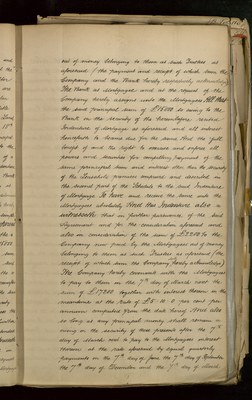 out of money belonging to them as such Trustees as
aforesaid (the payment and receipt of which sum the
Company and the Bank hereby respectively acknowledge)
The Bank as Mortgagees and at the request of the
Company hereby assigns unto the Mortgagees All that
the said principal sum of £15000 so owing to the
Bank on the security of the hereinbefore recited
Indenture of Mortgage as aforesaid and all interest
henceforth to become due for the same And the full
benefit of and the right to execute and enforce all
powers and remedies for compelling payment of the
same principal sum and interest other than in respect
of the leasehold premises comprised and described in
the second part of the Schedule to the said Indenture
of Mortgage To have and receive the same unto the
Mortgagees absolutely And this Indenture also
witnesseth that in further pursuance of the said
Agreement and for the consideration aforesaid and
also in consideration of the sum of £2200 to the
Company now paid by the Mortgagees out of money
belonging to them as such Trustees as aforesaid (the
receipt of which sum the Company hereby acknowledge)
The Company hereby covenants with the Mortgagees
to pay to them on the 7th day of March next the
sum of £17200 together with interest thereon in the
meantime at the rate of £5 per cent per
annum computed from the date hereof And also
so long as any principal money shall remain
owing on the security of these presents after the 7th
day of March next to pay to the Mortgagees interest
thereon at the rate aforesaid by equal quarterly
payments on the 7th day of June the 7th day of September
the 7th day of December and the 7th day of March